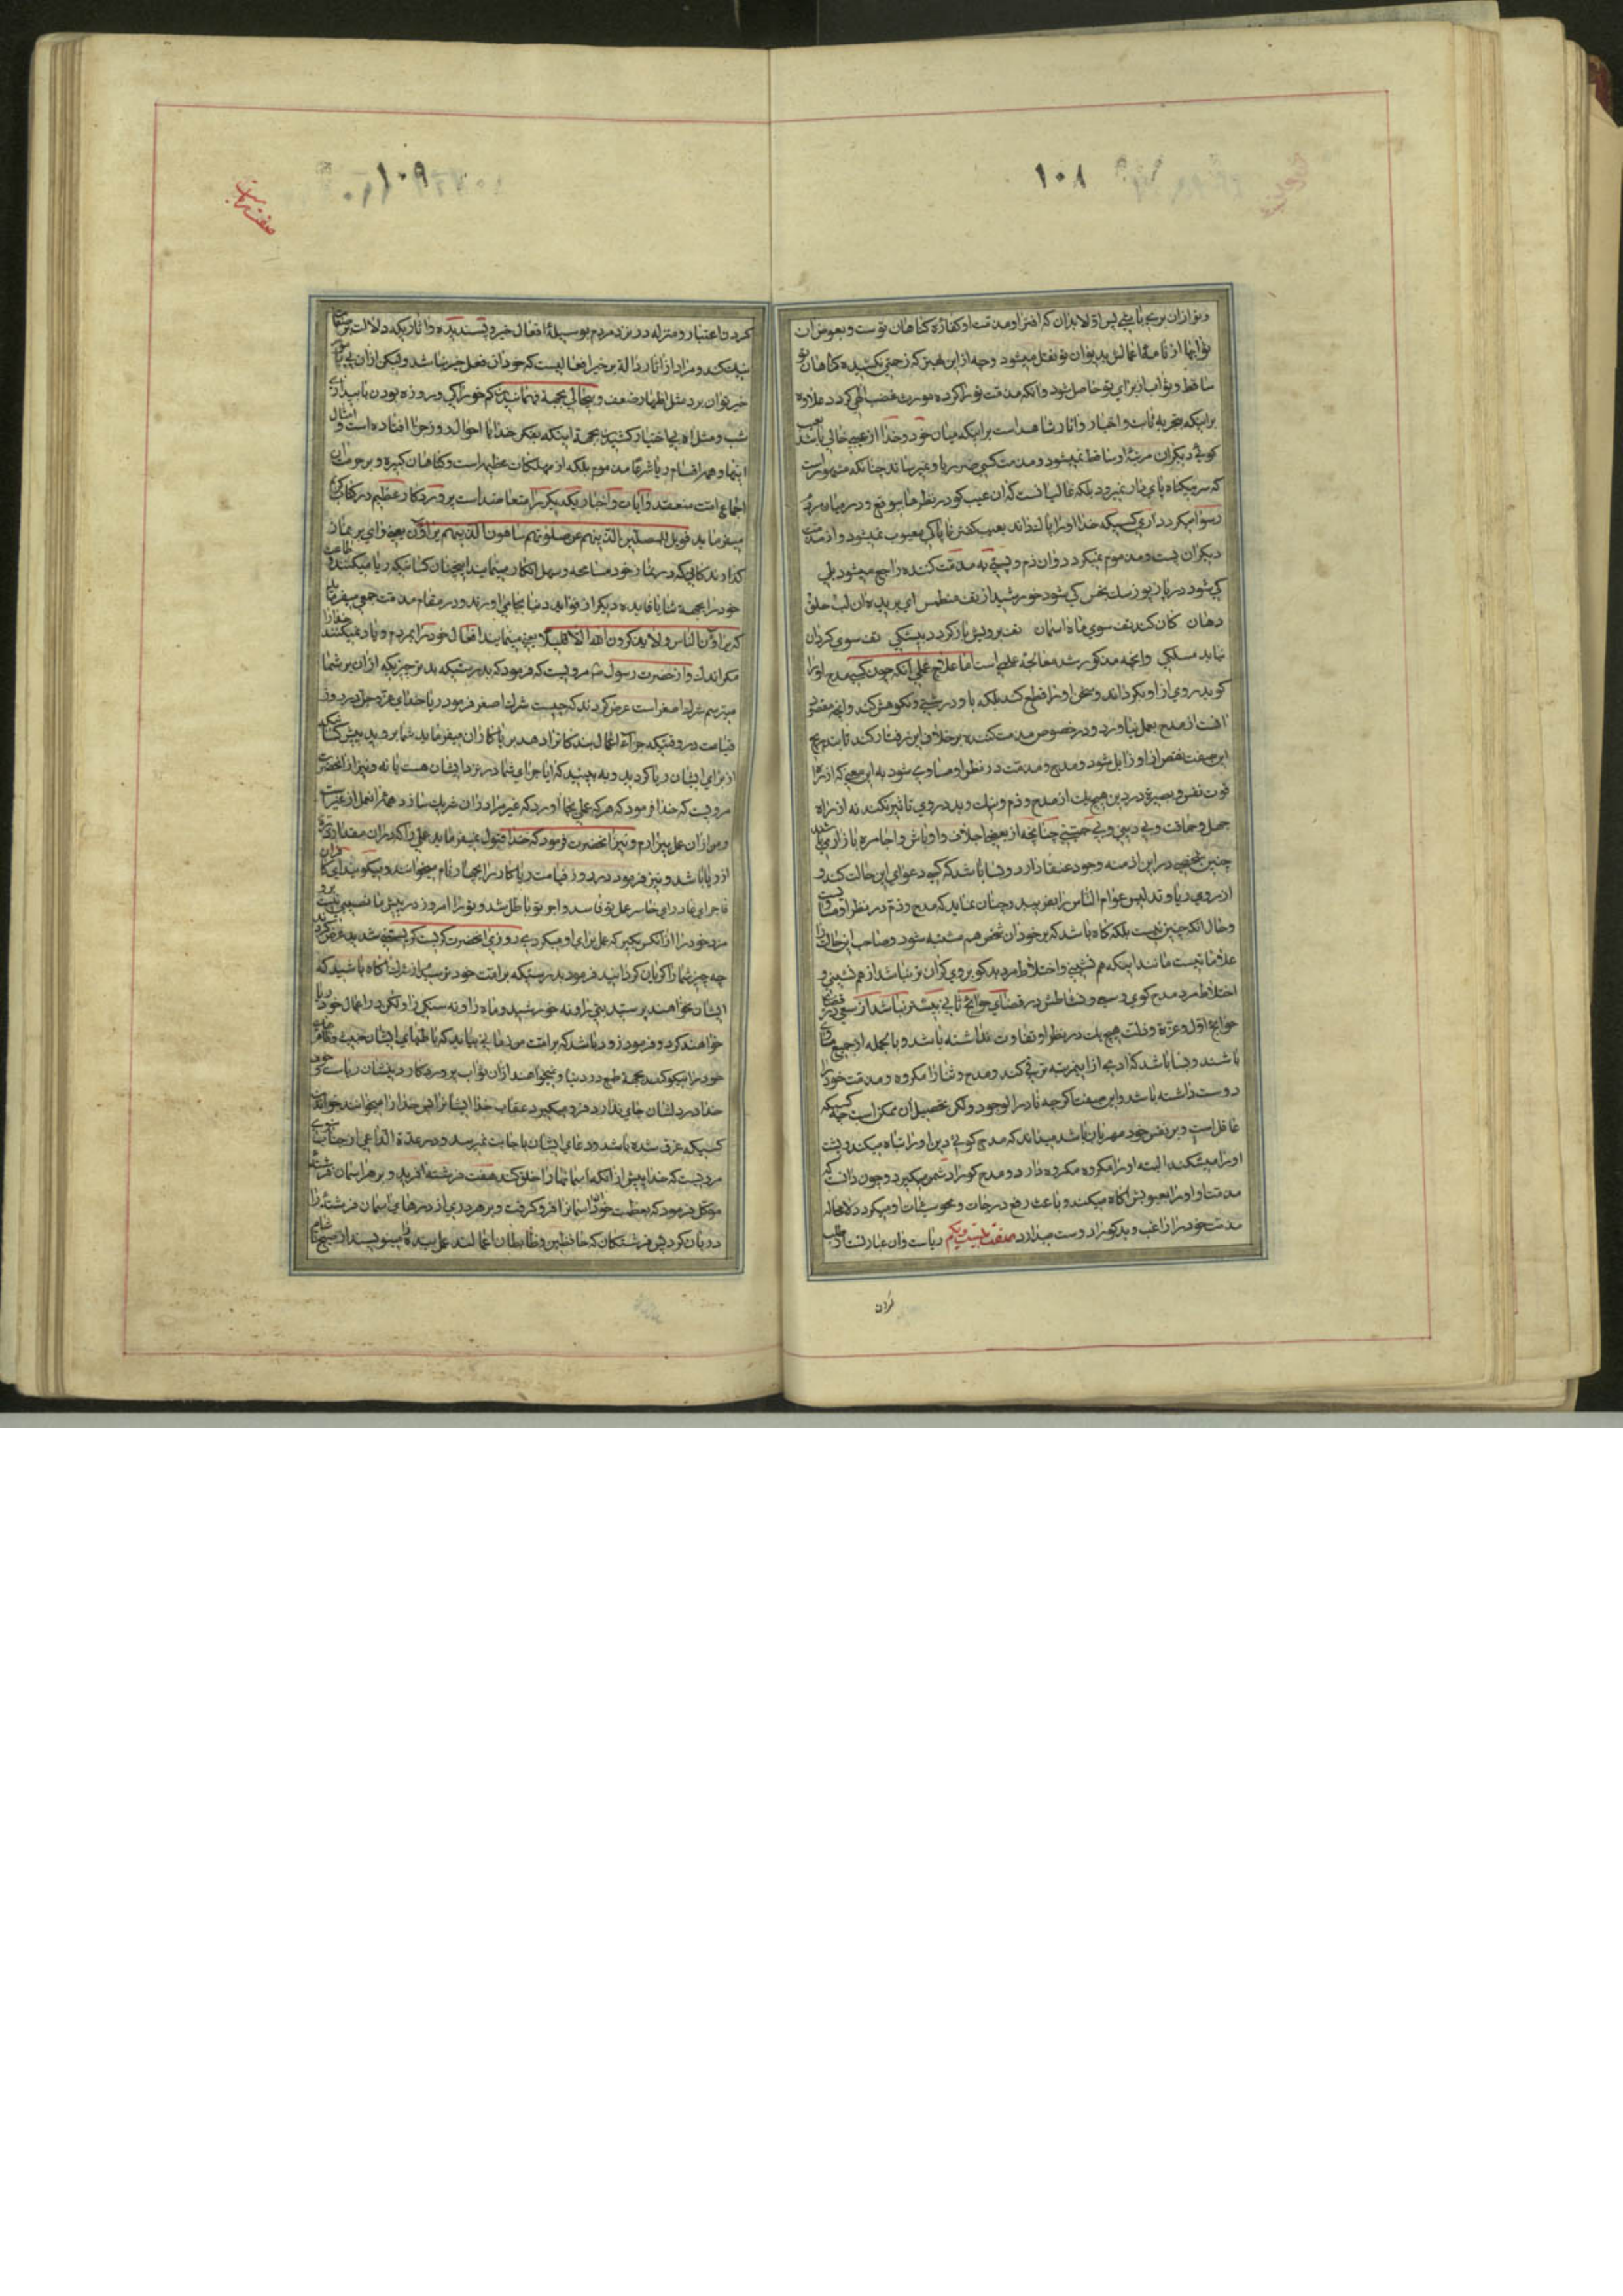 ۱۰۸
و تو از ان برى باشى پس اولا بدان كه افترا و مذمت او كفاره كناهان توست و بعوض ان
ثوابها از نامه اعمالش بديوان تو نقل ميشود و چه از اين بهتر كه زحمتى نكشيده كناهان تو
ساقط و ثواب از براى تو حاصل شود و انكه مذمت تو را كرده مورث غضب الهى كردد علاوه
براينكه بتجربه ثابت و اخبار و اثار شاهد است براينكه ميان خود و خدا از عيبى خالى باشد بعيب
كوئى ديكران مرتبه او ساقط نميشود و مذمت كسى ضرر باو نميرساند چنانكه مشهور است
كه سر بيكناه پاى دار نميرود بلكه غالب انست كه ان عيب كو در نظرها بى وقع و در ميان مردم
رسوا ميكردد ارى كسيكه خدا او را پاك داند بعيب كفتن ناپاكى معيوب نميشود و از مذمت
ديكران پست و مذموم نميكردد و ان ذم و پستى به مذمت كننده راجع ميشود بلى
كى شود دريا ز پوز سك نجس كى شود خورشيد از پف منطمس اى بريده ان لب و حلق و
دهان كان كند تف سوى ماه اسمان تف برويش باز كردد بيشكى تف سوى كردان
نيابد مسلكى و انچه مذكور شد معالجه علمى است اما علاج عملى انكه چون كسى مدح او را
كويد روى از او بكرداند و سخن او را قطع كند بلكه با او درشتى و نكوهش كند و انچه مقتضى
افت از مدح بعمل نياورد و در خصوص مذمت كننده برخلاف اين رفتار كند تا بتدريج
اين صفت نقص از او زايل شود و مدح و مذمت در نظر او مساوى شود به اين معنى كه از راه
قوت نفس و بصيرة در دين هيچيك از مدح و ذم و نيك و بد در وى تاثير نكند نه از راه
جهل و حماقت و بى دينى و بى حميتى چنانچه از بعضى اجلاف و اوباش و اجامره بازارى باشد
چنين شخصى در اين ازمنه وجود عنقا دارد و بسا باشد كه كسى دعواى اين حالت كند و
از روى ريا و تدليس عوام الناس را بفريبد و چنان نمايد كه مدح و ذم در نظر او مساوى است
و حال انكه چنين نيست بلكه كاه باشد كه بر خود ان شخص هم مشتبه شود و صاحب اين حالت را
علاماتيست مانند اينكه هم نشينى و اختلاط مرد بدكو بر وى كران تر نباشد از هم نشينى و
اختلاط مرد مدح كوى وسعى و نشاطش در قضاى حوائج ثانى بيشتر نباشد از سعى در قضاى
حوائج اول و عزة و ذلت هيچيك در نظر او تفاوت نداشته باشد و بالجمله از جميع مساوى
باشند و بسا باشد كه ادمى از اين مرتبه ترقى كند و مدح و ثنا را مكروه و مذمت خود را
دوست داشته باشد و اين صفت اكر چه نادر الوجود و لكن تحصيل ان ممكن است چه كسيكه
عاقل است و بر نفس خود مهربان باشد ميداند كه مدح كوئى دين او را تباه ميكند و پشت
او را ميشكند البته او را مكروه مكروه دارد و مدح كو را دشمن ميكيرد و چون دانست كه
مذمت او او را بعيوبش اكاه ميكند و باعث رفع درجات و محو سيئات او ميكردد لامحاله
مذمت خود را راغب و بدكو را دوست ميدارد صفت بيست و يكم رياست و ان عبارتست از طلب
كردن
۱۰۹
صفت ريا
كردن اعتبار و منزله در نزد مردم بوسيله افعال خير و پسنديده و اثاريكه دلالت بر صفات
نيك كند و مراد از اثار دالة بر خير افعاليست كه خود ان فعل خير نباشد و ليكن از ان پى بامور
خير توان برد مثل اظهار ضعف و بيحالى بجهة فهمانيدن كم خوراكى و روزه بودن يا بيدارى
شب و مثل اه بى اختيار كشيدن بجهة اينكه بفكر خدا يا احوال روز جزا افتاده است و امثال
اينها و همه اقسام ريا شرعا مذموم بلكه از مهلكات عظيمه است و كناهان كبيره و بر حرمت ان
اجماع امت منعقد و ايات و اخبار يكديكر را متعاضد است پروردكار عظيم در كتاب كريم
ميفرمايد فويل للمصلين الذينهم عن صلوتهم ساهون الذينهم يراؤن يعنى واى بر نماز
كذارندكانى كه در نماز خود مسامحه و سهل انكارى مينمايند اينچنان كسانيكه ريا ميكنند و طاعت
خود را بجهة ثنا يا فايده ديكر از فوايد دنيا بجاى اورند و در مقام مذمت جمعى ميفرمايد
كه يراؤن الناس ولا يذكرون الله الا قليلا يعنى مينمايند افعال خود را بمردم و ياد نميكنند خدا را
مكر اندك و از حضرت رسول ص مرويست كه فرمود كه بدرستيكه بدترين چيزيكه از ان بر شما
ميترسم شرك اصغر است عرض كردند كه چيست شرك اصغر فرمود ريا خداى عز و جل در روز
قيامت در وقتيكه جزاء اعمال بندكانرا دهد برياكاران ميفرمايد شما برويد پيش كسانيكه
از براى ايشان ريا كرديد و به بينيد كه ايا جزاى شما در نزد ايشان هست يا نه و نيز از انحضرت
مرويست كه خدا فرمود كه هر كه عملى بجا اورد كه غير مرا در ان شريك سازد همه ان عمل از غير است
و من از ان عمل بيزارم و نيز انحضرت فرمود كه خدا قبول نميفرمايد عملى را كه در ان مقدار ذره
از ريا باشد و نيز فرمود در روز قيامت رياكار را بچهار نام ميخوانند و ميكويند اى كافر
فاجر اى غادر اى خاسر عمل تو فاسد و اجر تو باطل شد و تو را امروز در پيش ما نصيبى نيست برو
مزد خود را از انكس بكير كه عمل براى او ميكردى روزى انحضرت كريست كريستنى شديد عرض كردند
چه چيز شما را كريان كردانيد فرمود بدرستيكه بر امت خود ترسيدم از شرك اكاه باشيد كه
ايشان نخواهند پرستيد بتى را و نه خورشيد و ماه را و نه سنكى را ولكن در اعمال خود ريا
خواهند كرد و فرمود زود باشد كه بر امت من زمانى بيايد كه باطنهاى ايشان خبيث و ظاهر
خود را نيكو كنند بجهة طمع در دنيا و نميخواهند از ان ثواب پروردكار دينشان رياست خوف
خدا در دلشان جاى ندارد فرو ميكيرد عقاب خدا ايشانرا پس خدا را ميخوانند خواندن
كسيكه غرق شده باشد و دعاى ايشان باجابت نميرسد و در عدة الداعى از جناب نبوى
مرويست كه خدا پيش از انكه اسمانها را خلق كند هفت فرشته افريد و بر هر اسمان فرشته
موكل فرمود كه بعظمت خود ان اسمانرا فرو كرفت و بر هر درى از درهاى اسمان فرشته را
دربان كرد پس فرشتكان كه حافظين و ظابطان اعمالند عمل بنده را مينويسند از صبح تا شام